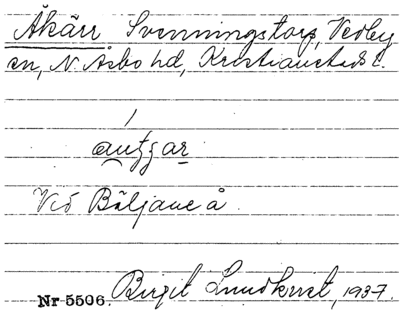 Åkärr Svenningstorp, Vedby
sn, N. Åsbo hd, Kristianstads l.
Vid Bäljane å.
Nr 5506. Birgit Lundkvist, 1937.